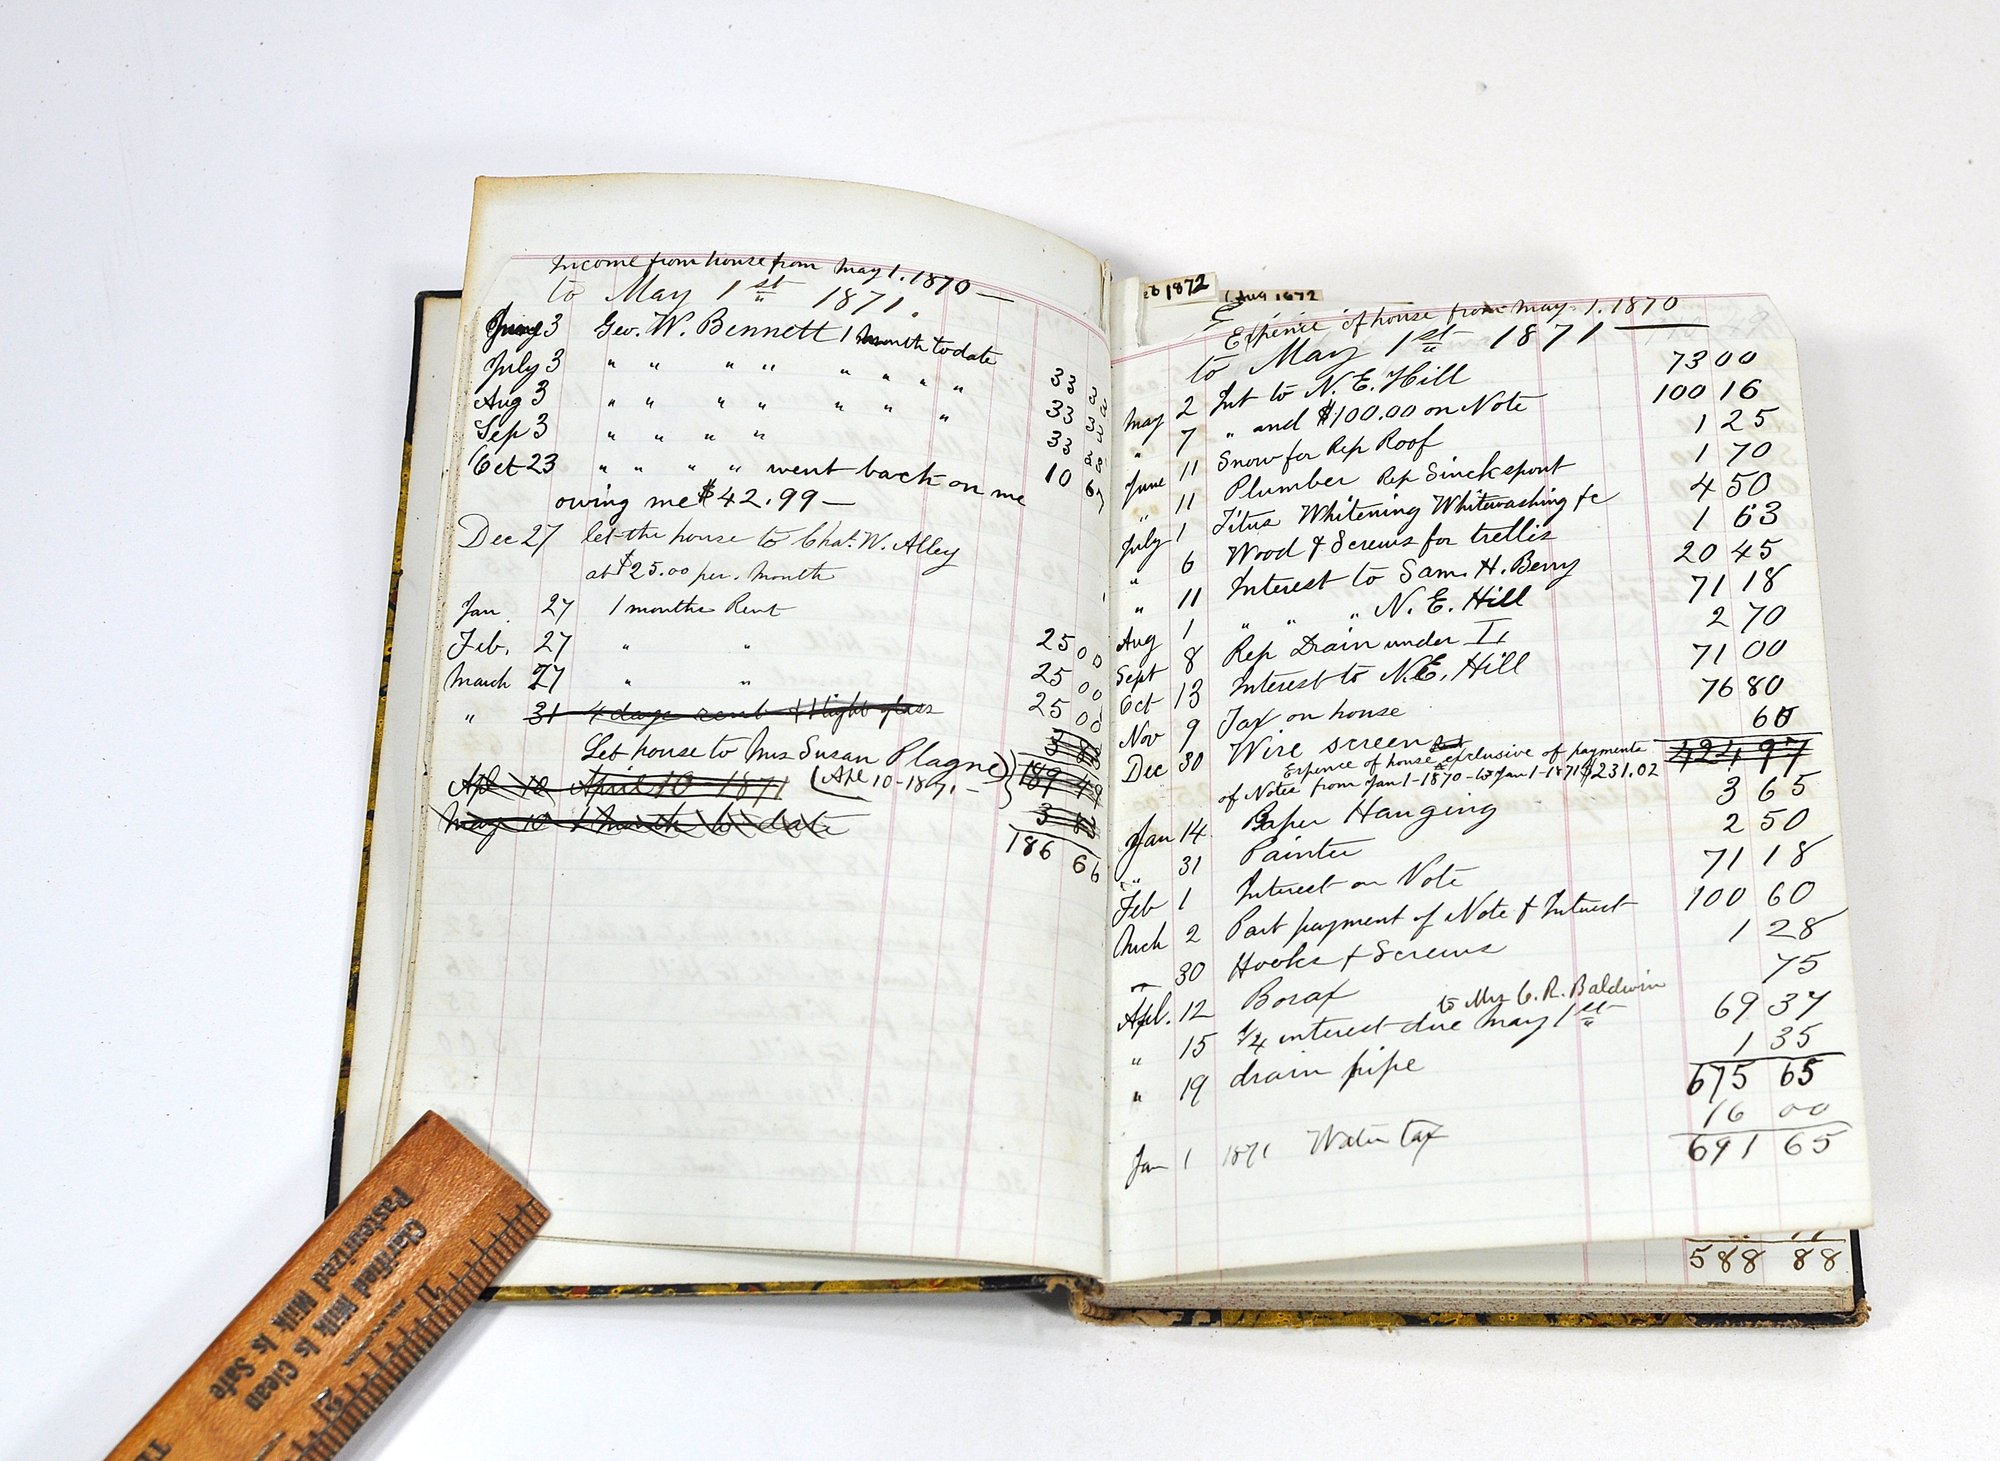 Income from house from May 1. 1870 —
to May 1st 1871.
June 3 Geo. W. Bennett 1 month to date
July 3 " " " " " " " " 33 33
Aug 3 " " " " " " " 33 33
Sep 3 " " " " 33 33
Oct 23 " " " " went back on me 10 67
owing me $42.99 —
Dec 27 let the house to Chas. W. Alley
at $25.00 per. month
Jan. 27 1 months Rent
Feb. 27 " " 25 00
March 27 " " 25 00
" 31 4 days rent & light glass 25 00
Let house to Mrs Susan Plagne
Apl 10 April 10-1871 (Apl 10-1871.— 189 49
May 10 1 Month to date
186 66
1872
Aug 1872
Expence of house from May. 1. 1870
to May 1st 1871
May 2 Int to N. E. Hill 73 00
" 7 " and $100.00 on Note 100 16
June 11 Snow for Rep Roof 1 25
" 11 Plumber Rep Sinck spout 1 70
July 1 Titus Whitening Whitewashing &c 4 50
" 6 Wood & Screws for trellis 1 63
" 11 Interest to Sam. H. Berry 20 45
Aug 1 " " " N. E. Hill 71 18
Sept 8 Rep Drain under 2 70
Oct 13 Interest to N. E. Hill 71 00
Nov 9 Tax on house 76 80
Dec 30 Wire screen 60
Expence of house exclusive of payments 424 97
of Notes from Jan 1-1870-to Jan 1-1871 $231.02
Jan 14 Paper Hanging 3 65
" 31 Painter 2 50
Feb 1 Interest on Note 71 18
Mch 2 Part payment of Note & Interest 100 60
" 30 Hooks & Screws 1 28
Apl. 12 Borax 75
to Mrs C. R. Baldwin
" 15 1/4 interest due May 1st 69 37
" 19 drain pipe 1 35
675 65
Jan 1 1871 Water tax 16 00
691 65
588 88
Clarified Milk Is Clean
Pasteurized Milk Is Safe
1
2